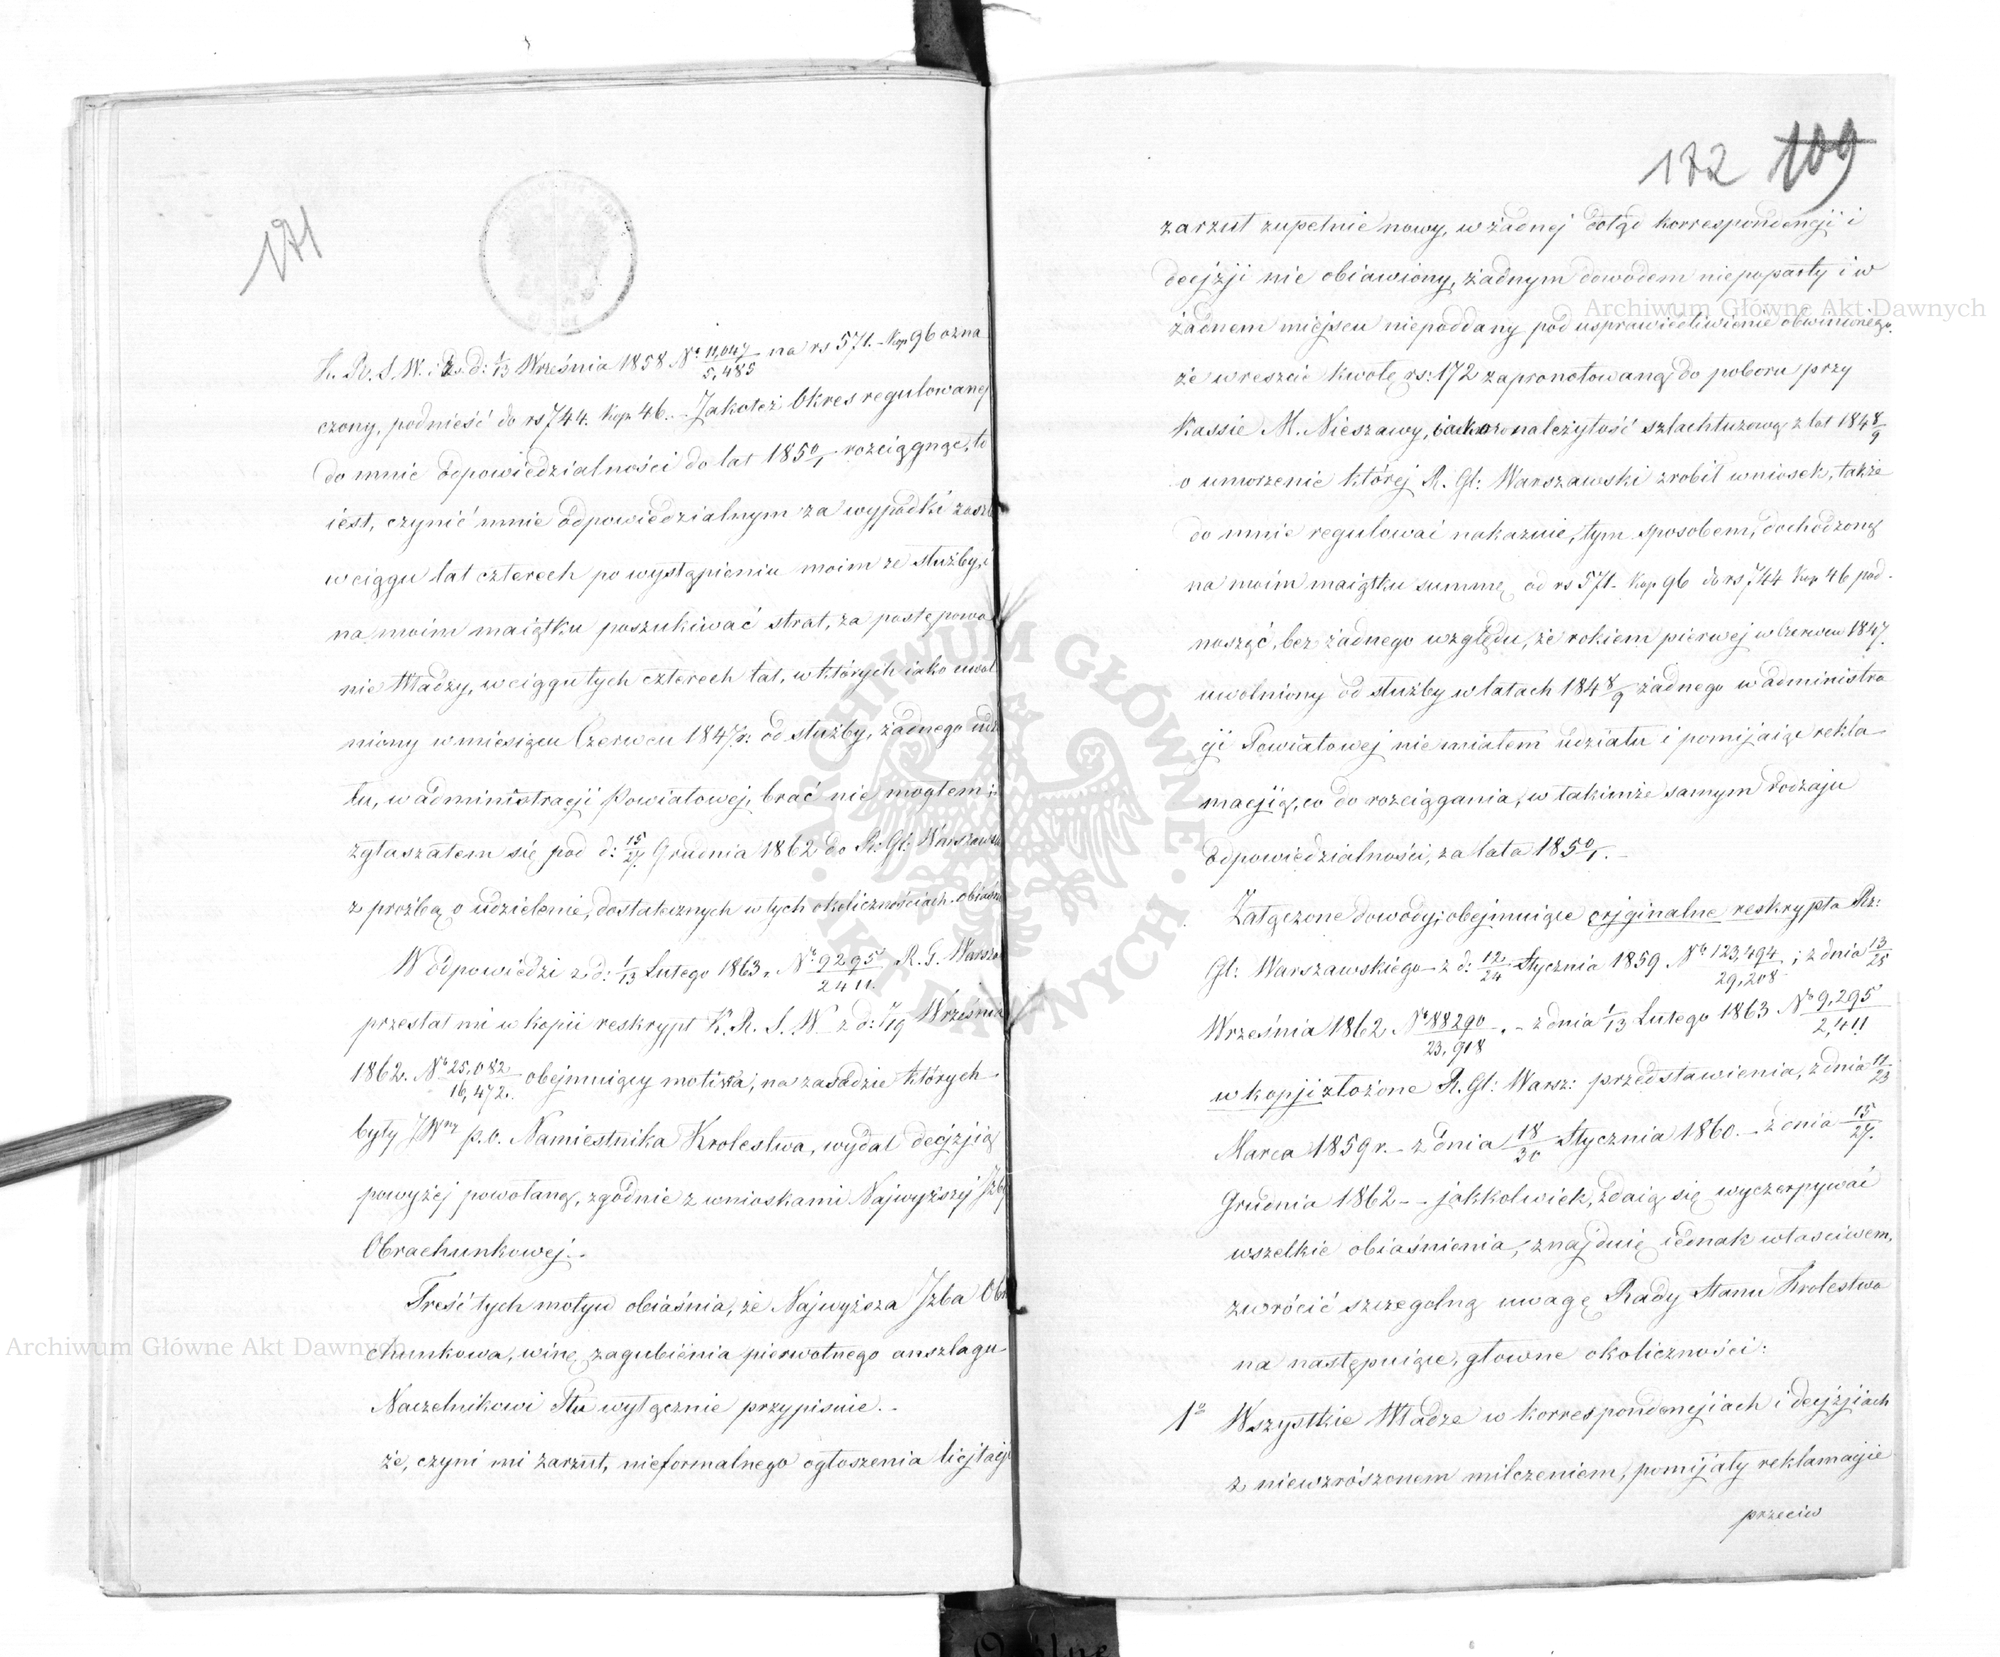 171
K. R. S. W. i D. d: 1/13 Września 1858 No 11,047/5,485 na rs 571. kop 96 ozna
czony, podnieść do rs 744. kop 46. Jakoteż Okres regulowanej
do mnie odpowiedzialności do lat 1850/1 rozciągnąć, to
iest, czynić mnie odpowiedzialnym za wypadki zaszł
w ciągu lat czterech po wystąpieniu moim ze służby, i
na moim maiątku poszukiwać strat, za postępowa
nie Władzy, w ciągu tych czterech lat, w których iako uwol
niony w miesiącu Czerwcu 1847 r: od służby, żadnego udz
łu, w administracji Powiatowej, brać nie mogłem ;-
zgłaszałem się pod d: 15/27 Grudnia 1862 do R: Gl: Warszaws
z prożbą o udzielenie, dostatecznych w tych okolicznościach obiaśn
W odpowiedzi z d: 1/13 Lutego 1863, No 9295/2411. R. G. Warsza
przesłał mi w kopii reskrypt K. R. S. W. z d: 7/19 Września
1862. No 25,082/16,472. obejmuiący motiwa, na zasadzie których
były JWny p. o. Namiestnika Krolestwa, wydał decjzjią
powyżej powołaną, zgodnie z wnioskami Najwyższej Izby
Obrachunkowej.-
Treść tych motyw obiaśnia, że Najwyższa Izba Obr
chunkowa, winę zagubienia pierwotnego anszlagu
Naczelnikowi Ptu wyłącznie przypisuie.-
że, czyni mi zarzut, nieformalnego ogłoszenia licjtacji
172 109
zarzut zupełnie nowy, w żadnej dotąd korrespondencji i
decjzji nie obiawiony, żadnym dowodem niepoparty i w
żadnem miejscu niepoddany pod usprawiedliwienie obwinionego.
że wreszcie kwotę rs: 172 zapronotowaną do poboru przy
Kassie M. Nieszawy, iako należytość szlachtuzową z lat 1848/9
o umorzenie której R. Gl: Warszawski zrobił wniosek, także
do mnie regulować nakazuie, tym sposobem, dochodzoną
na moim maiątku summę od rs 571. kop 96 do rs 744 kop 46 pod-
nosząć, bez żadnego względu, że rokiem pierwej w Czerwcu 1847.
uwolniony od służby w latach 1848/9 żadnego w administra
cji Powiatowej nie miałem udziału i pomijaiąc rekla-
macjią, co do rozciągania, w takimże samym rodzaju
odpowiedzialności, za lata 1850/1.-
Załączone dowody, obejmuiące orjginalne reskrypta Rz:
Gl: Warszawskiego z d: 12/24 Stycznia 1859 No 123,494/29,208 ; z dnia 13/25
Września 1862 No 88290/23,918 . - z dnia 1/13 Lutego 1863 No 9,295/2,411
w kopji złożone R. Gl: Warsz: przedstawienia, z dnia 11/23
Marca 1859 r. - z dnia 18/30 Stycznia 1860. - z dnia 15/27.
Grudnia 1862 - - jakkolwiek, zdaią się wyczerpywać
wszelkie obiaśnienia, znajduię iednak właściwem,
zwrócić szczegolną uwagę Rady Stanu Krolestwa
na następuiące, głowne okoliczności:
1o Wszystkie Władze w korrespondencjiach i decjzjiach
z niewzrószonem milczeniem, pomijały reklamacjie
przeciw
Archiwum Główne Akt Dawnych
Archiwum Główne Akt Dawnych
ARCHIWUM GŁÓWNE AKT DAWNYCH